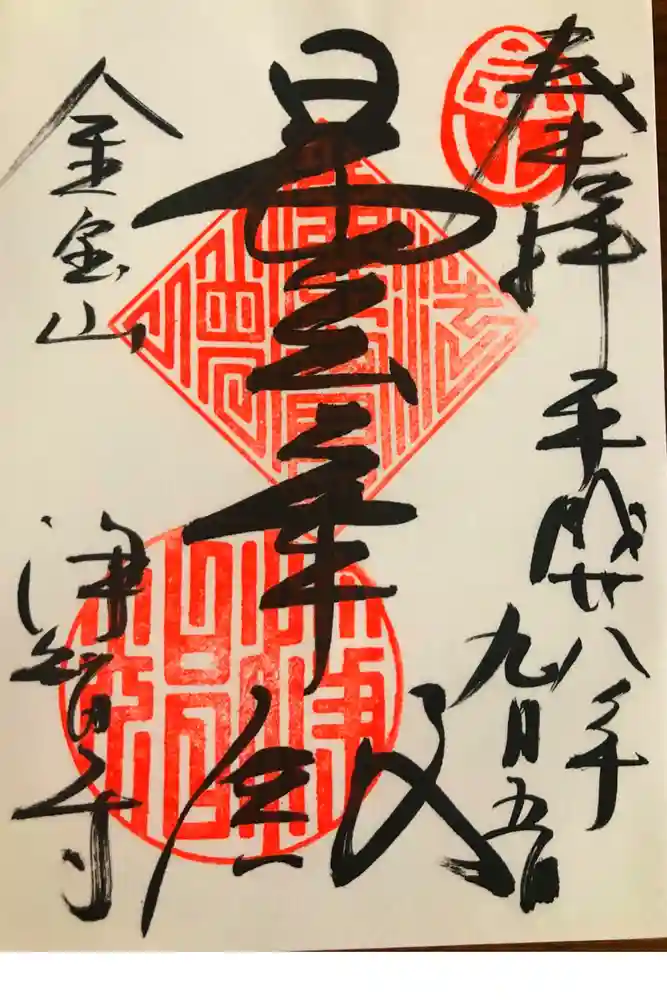 奉拝
平成廿八年
九月五日
曇華殿
金宝山
浄智寺